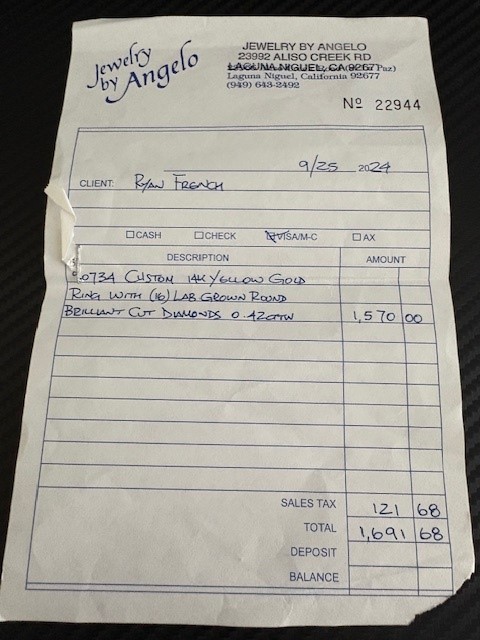 Jewelry
by Angelo
JEWELRY BY ANGELO
23992 ALISO CREEK RD
LAGUNA NIGUEL, CA 92677
Paz)
Laguna Niguel, California 92677
(949) 643-2492
Nº 22944
9/25 2024
CLIENT: RYAN FRENCH
CASH CHECK VISA/M-C AX
DESCRIPTION AMOUNT
0734 CUSTOM 14K YELLOW GOLD
RING WITH (16) LAB GROWN ROUND
BRILLIANT CUT DIAMONDS 0.42CTTW 1,570 00
SALES TAX 121 68
TOTAL 1,691 68
DEPOSIT
BALANCE